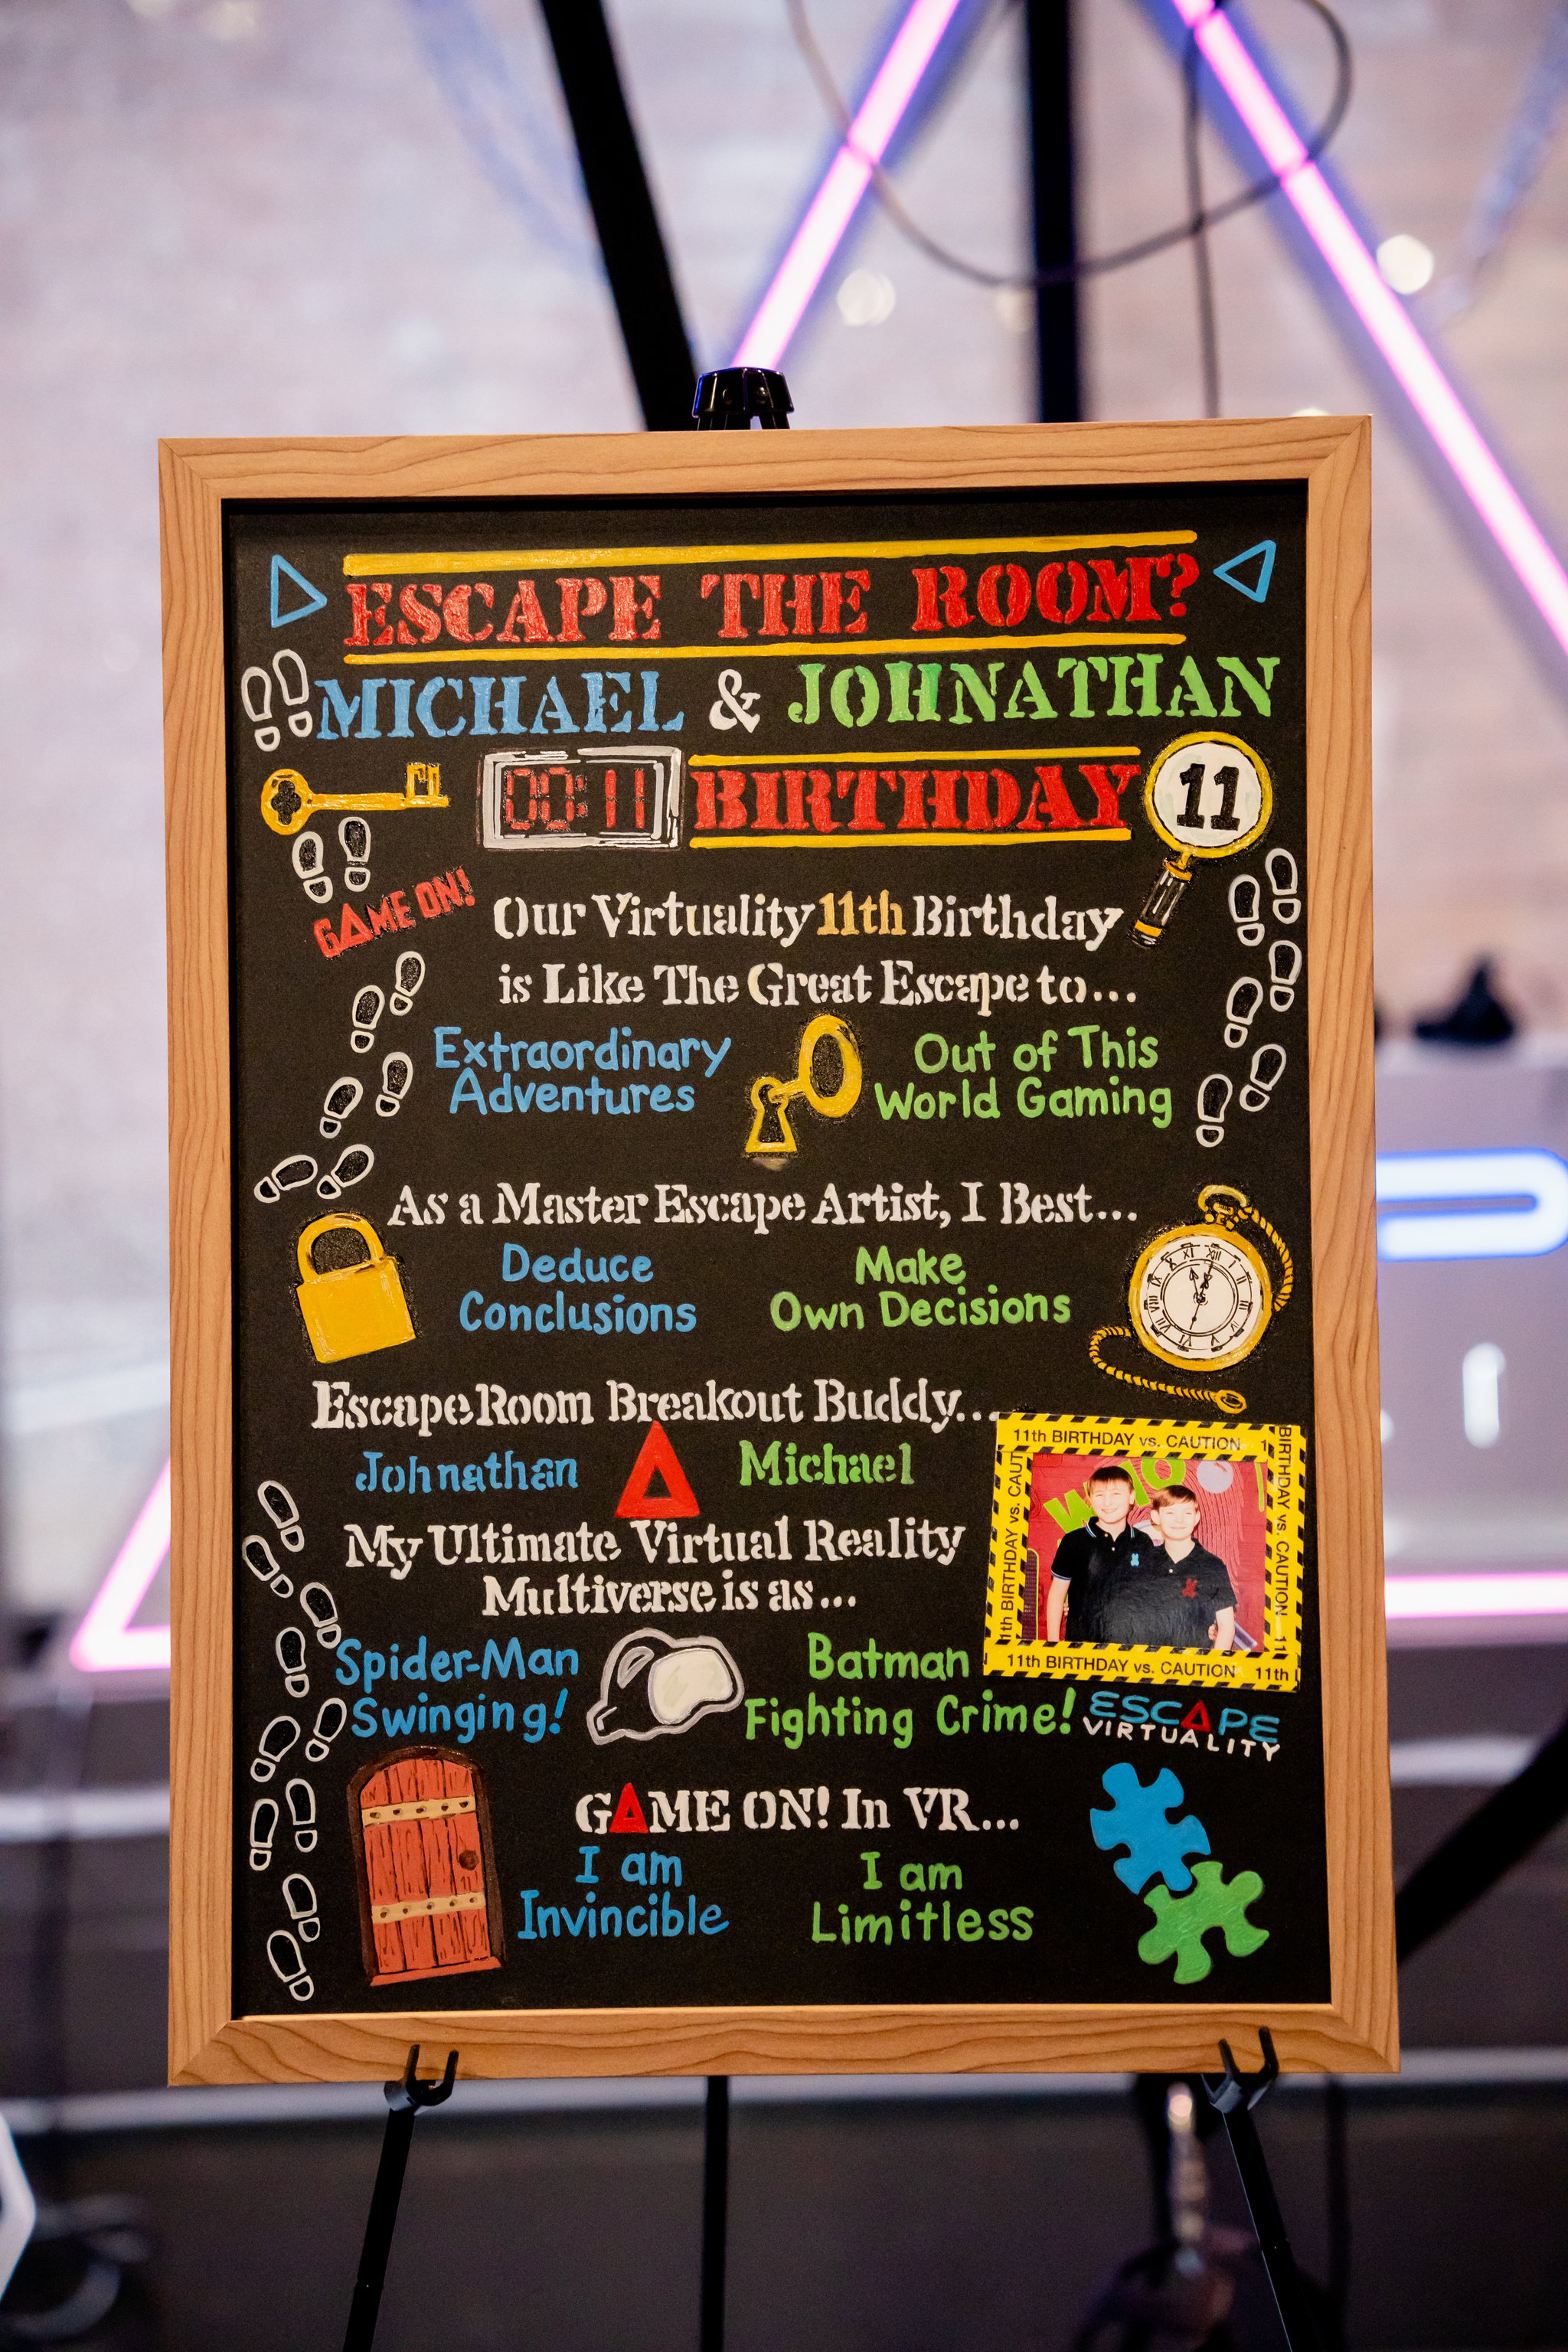 ESCAPE THE ROOM?
MICHAEL & JOHNATHAN
00:11 BIRTHDAY 11
GAME ON!
Our Virtuality 11th Birthday
is Like The Great Escape to...
Extraordinary
Adventures
Out of This
World Gaming
As a Master Escape Artist, I Best...
Deduce
Conclusions
Make
Own Decisions
XII
Escape Room Breakout Buddy...
Johnathan
Michael
11th BIRTHDAY vs. CAUTION
BIRTHDAY vs. CAUTION
11th BIRTHDAY vs. CAUT
11th BIRTHDAY vs. CAUTION 11th
My Ultimate Virtual Reality
Multiverse is as...
Spider-Man
Swinging!
Batman
Fighting Crime!
ESCAPE
VIRTUALITY
GAME ON! In VR...
I am
Invincible
I am
Limitless